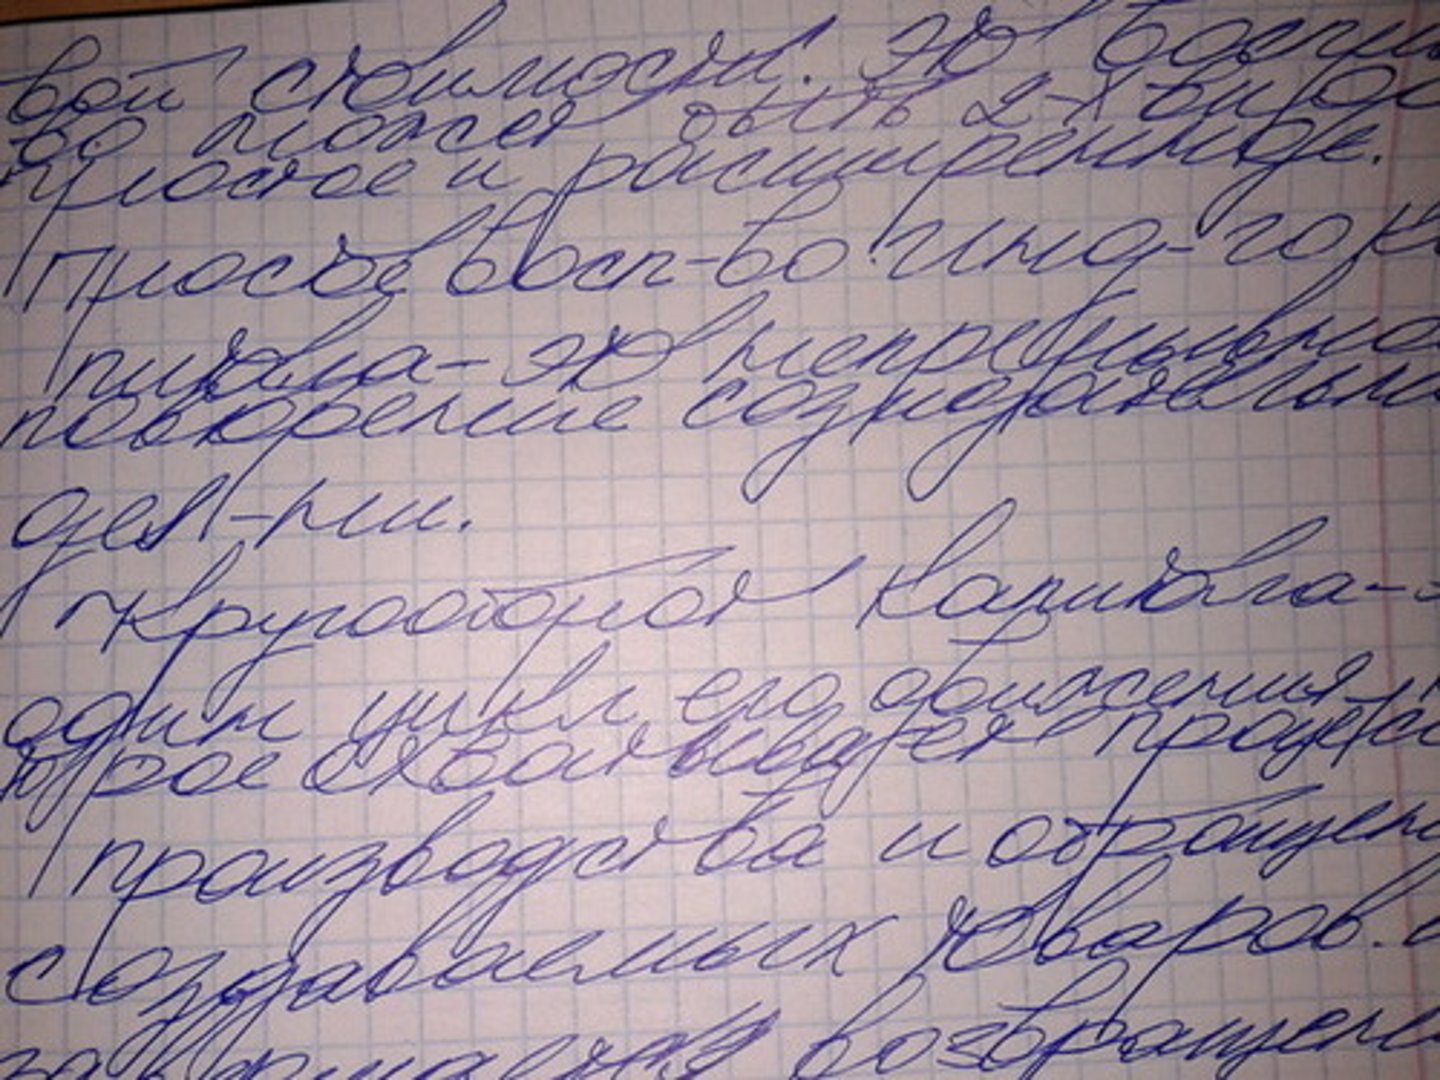 вой стоимости. Это воспр
во может быть 2-х видо
простое и расширенное.
Простое восп-во инд-го ка
питала - это непрерывно
повторение созидательно
деят-ти.
Кругооборот капитала -
один цикл его движения, к
торое охватывает процесс
производства и обращен
создаваемых товаров.
завершается возвращен